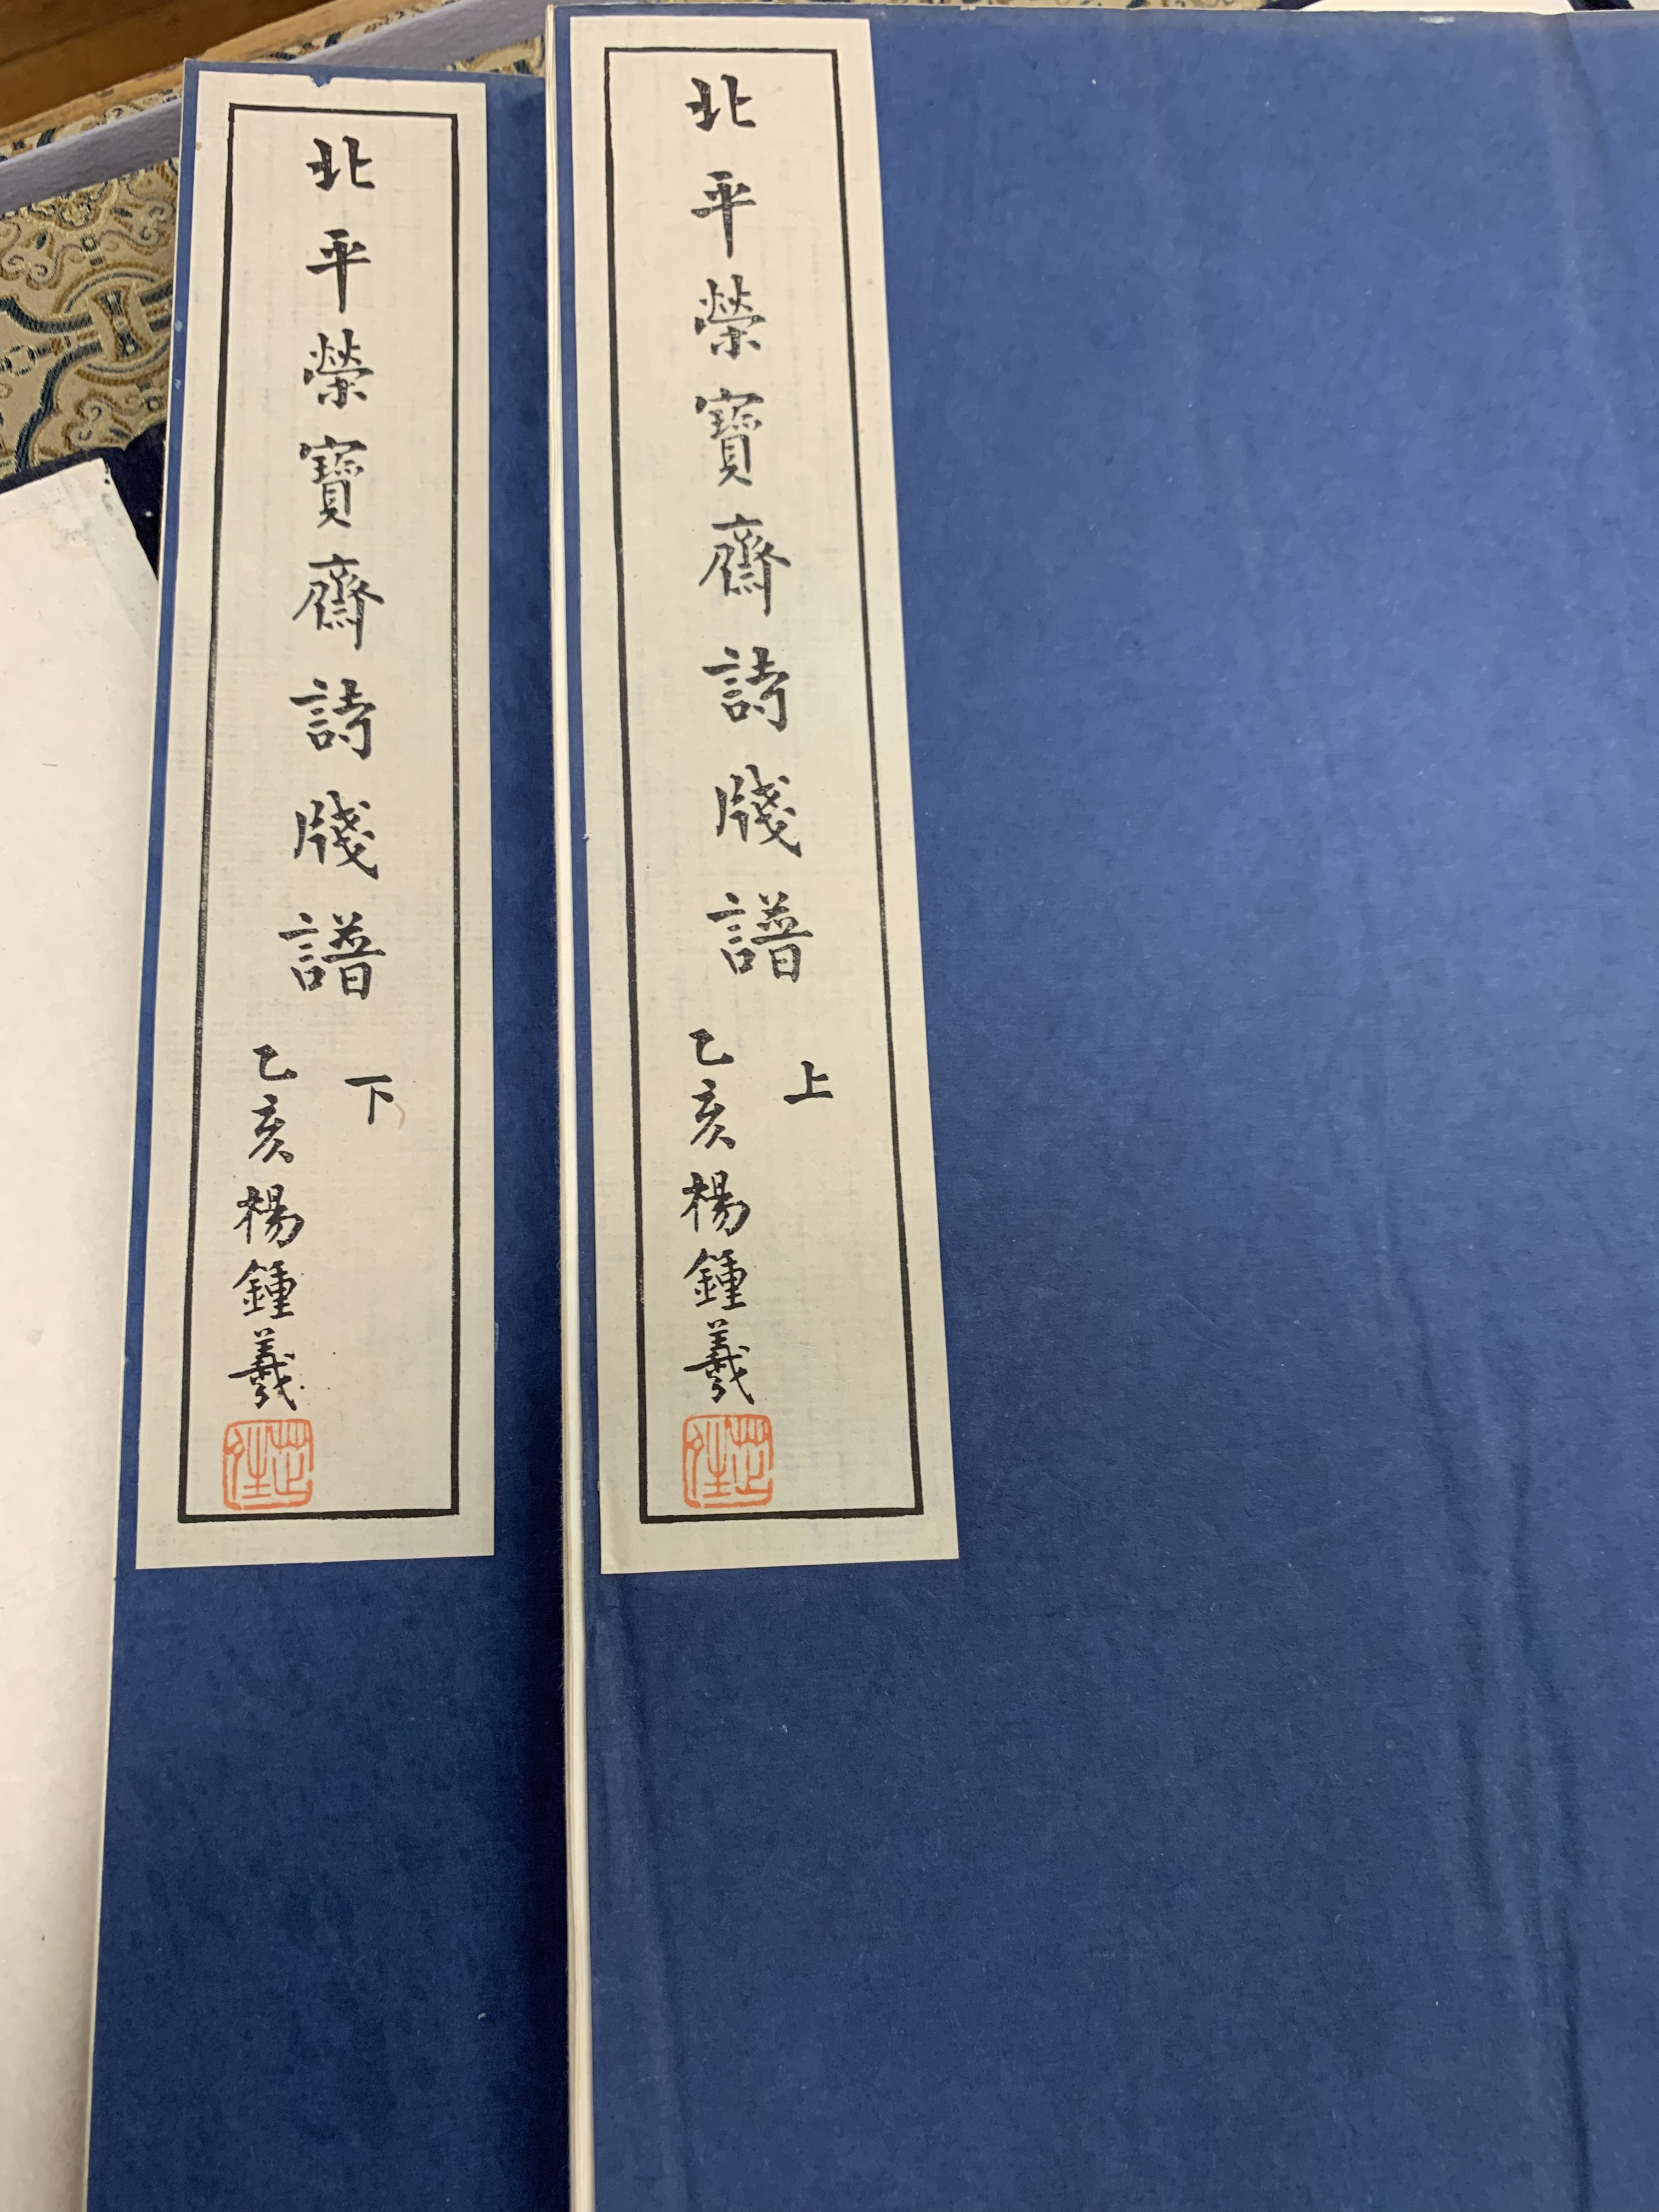 北平榮寶齋詩牋譜
上
乙亥楊鍾羲
北平榮寶齋詩牋譜
下
乙亥楊鍾羲